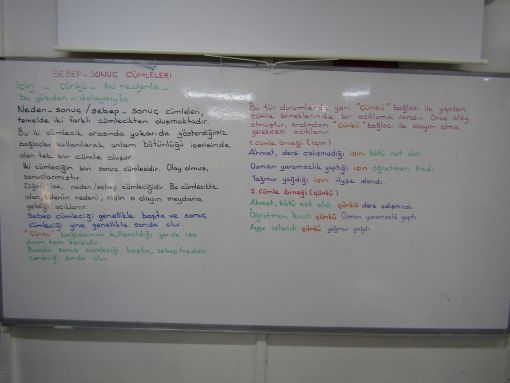 SEBEP-SONUÇ CÜMLELERİ
için - çünkü - bu nedenle -
bu yüzden - dolayısıyla
Neden-sonuç/sebep-sonuç cümleleri,
temelde iki farklı cümlecikten oluşmaktadır.
Bu iki cümlecik arasında yukarıda gösterdiğimiz
bağlaçlar kullanılarak, anlam bütünlüğü içerisinde
olan tek bir cümle oluşur.
İki cümleciğin biri sonuç cümlesidir. Olay olmuş,
sonuçlanmıştır.
Diğeri ise, neden/sebep cümleciğidir. Bu cümlecikte
olan, bitenin nedeni, niçin o olayın meydana
geldiği açıklanır.
Sebep cümleciği genellikle başta ve sonuç
cümleciği yine genellikle sonda olur.
"Çünkü" bağlacının kullanıldığı yerde ise
durum tam tersidir.
Burada sonuç cümleciği başta, sebep/neden
cümleciği sonda olur.
Bu tür durumlarda yani "çünkü" bağlacı ile yapılan
cümle örneklerinde bir açıklama vardır. Önce olay
olmuştur, ardından "çünkü" bağlacı ile olayın olma
gerekçesi açıklanır.
1. Cümle örneği (için)
Ahmet, ders çalışmadığı için kötü not aldı.
Osman yaramazlık yaptığı için öğretmen kızdı.
Yağmur yağdığı için Ayşe ıslandı.
2. Cümle örneği (çünkü)
Ahmet, kötü not aldı çünkü ders çalışmadı.
Öğretmen kızdı çünkü Osman yaramazlık yaptı.
Ayşe ıslandı çünkü yağmur yağdı.